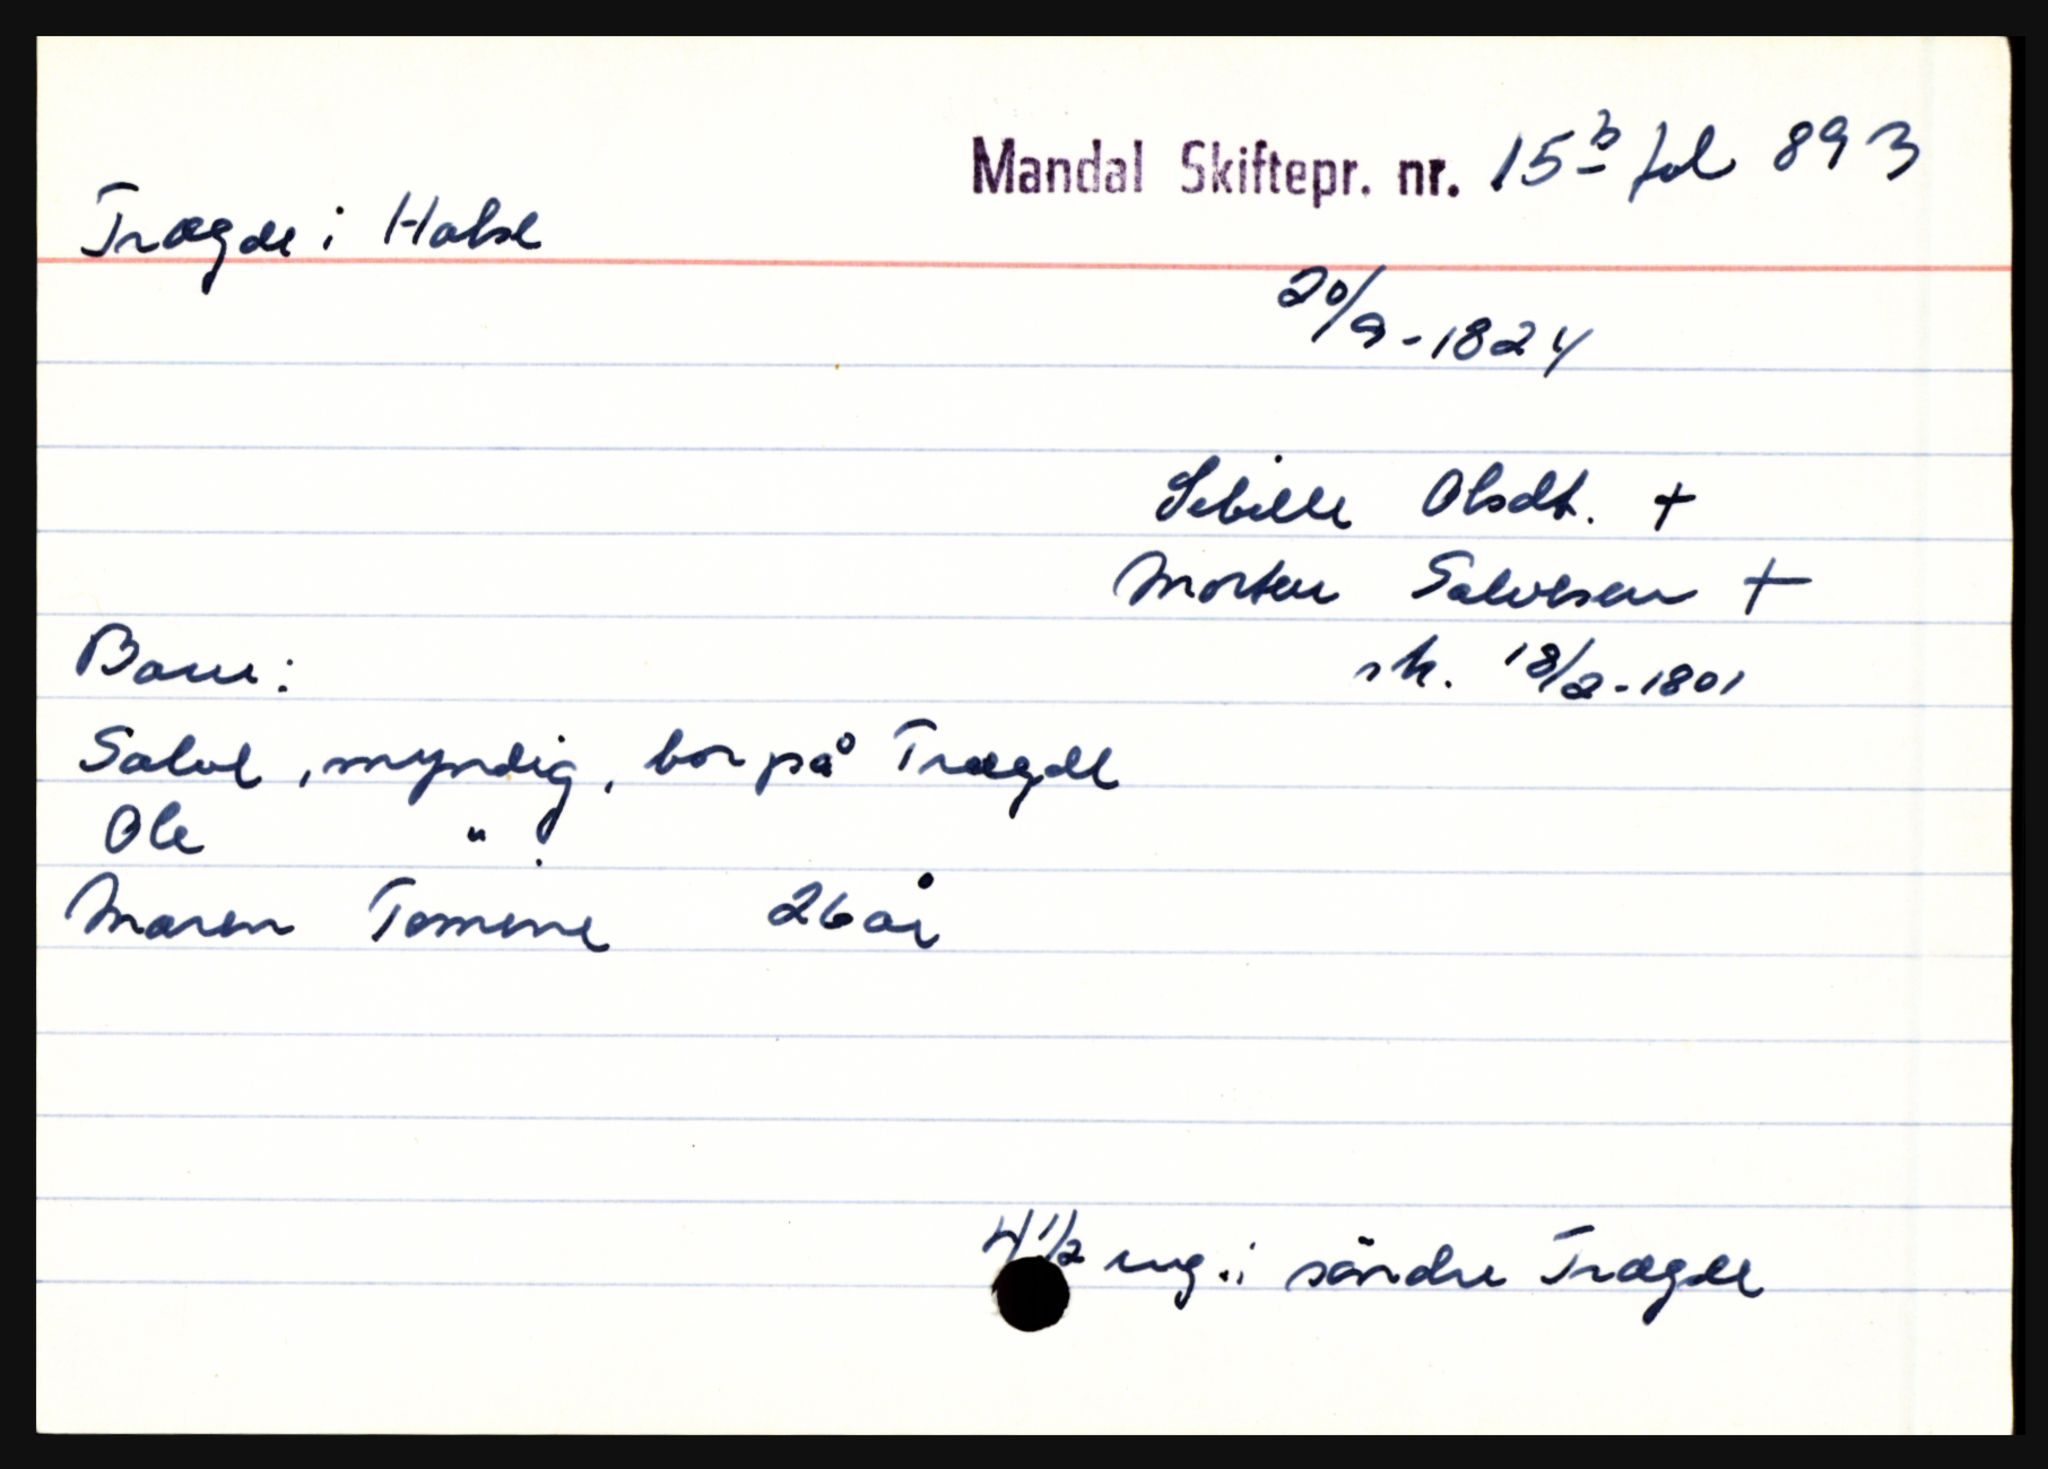 Mandal Skiftepr. nr. 15 b fol 893
Trægde i Halse
20/9-1824
Sibille Olsdt. +
Morten Salvesen +
sk. 18/2-1801
Barn:
Salve, myndig, bor på Trægde
Ole "
Maren Tomine 26 år
4 1/2 eng. i söndre Trægde